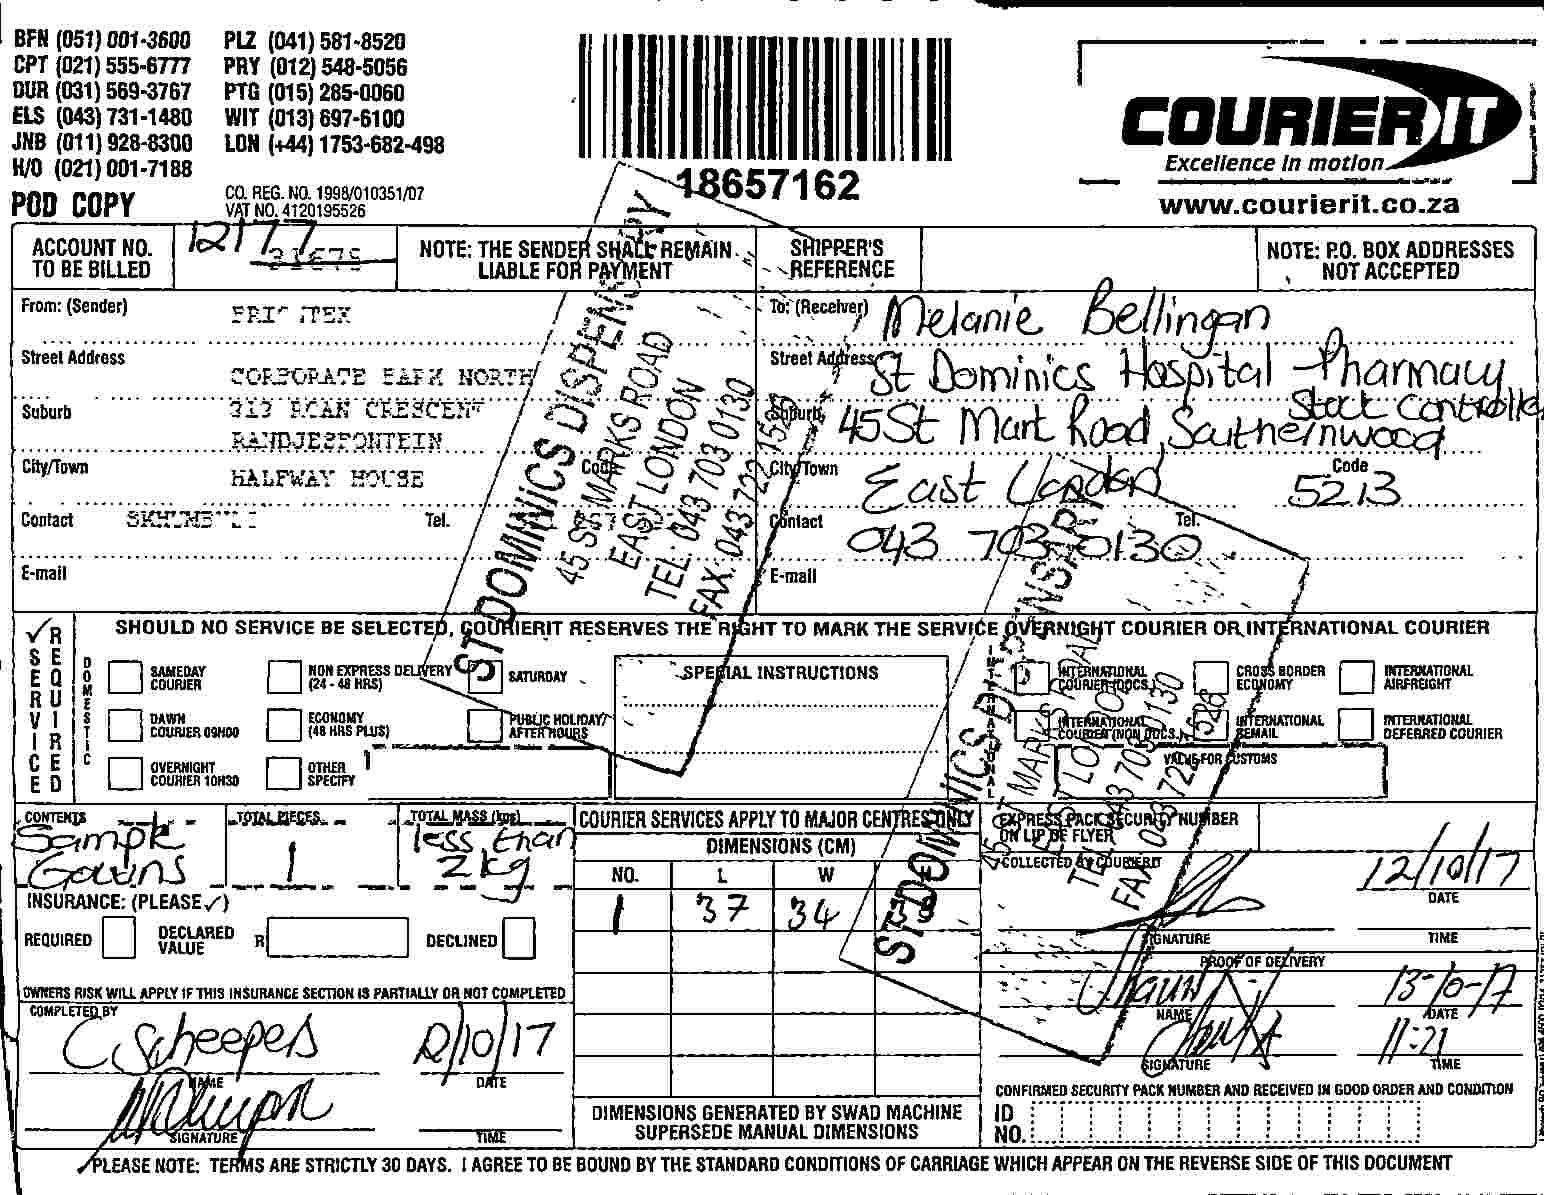 BFN (051) 001-3600 PLZ (041) 581-8520
CPT (021) 555-6777 PRY (012) 548-5056
DUR (031) 569-3767 PTG (015) 285-0060
ELS (043) 731-1480 WIT (013) 697-6100
JNB (011) 928-8300 LON (+44) 1753-682-498
H/O (021) 001-7188
POD COPY
CO. REG. NO. 1998/010351/07
VAT NO. 4120195526
18657162
COURIER IT
Excellence in motion
www.courierit.co.za
ACCOUNT NO. TO BE BILLED
12177
31675
NOTE: THE SENDER SHALL REMAIN LIABLE FOR PAYMENT
SHIPPER'S REFERENCE
NOTE: P.O. BOX ADDRESSES NOT ACCEPTED
From: (Sender)
Street Address
CORPORATE PARK NORTH
Suburb
313 ROAN CRESCENT
RANDJESFONTEIN
City/Town
HALFWAY HOUSE
Code
Contact
Tel.
E-mail
To: (Receiver) Melanie Bellingan
Street Address St Dominics Hospital Pharmacy
Stock Controller
Suburb 45 St Mark Road, Southernwood
City/Town East London Code 5213
Contact 043 703 0130 Tel.
E-mail
ST DOMINICS DISPENSARY
45 ST MARKS ROAD
EAST LONDON
TEL: 043 703 0130
FAX: 043 722 1528
SERVICE REQUIRED
SHOULD NO SERVICE BE SELECTED, COURIERIT RESERVES THE RIGHT TO MARK THE SERVICE OVERNIGHT COURIER OR INTERNATIONAL COURIER
DOMESTIC
SAMEDAY COURIER
NON EXPRESS DELIVERY (24 - 48 HRS)
SATURDAY
DAWN COURIER 09H00
ECONOMY (48 HRS PLUS)
PUBLIC HOLIDAY/ AFTER HOURS
OVERNIGHT COURIER 10H30
OTHER SPECIFY
SPECIAL INSTRUCTIONS
INTERNATIONAL
INTERNATIONAL COURIER (DOCS.)
CROSS BORDER ECONOMY
INTERNATIONAL AIRFREIGHT
INTERNATIONAL COURIER (NON DOCS.)
INTERNATIONAL REMAIL
INTERNATIONAL DEFERRED COURIER
VALUE FOR CUSTOMS
ST DOMINICS DISPENSARY
45 ST MARKS ROAD
EAST LONDON
TEL: 043 703 0130
FAX: 043 722 1528
CONTENTS
Sample
Gowns
TOTAL PIECES
1
TOTAL MASS (kgs)
less than
2kg
INSURANCE: (PLEASE ✓)
REQUIRED
DECLARED VALUE R
DECLINED
OWNERS RISK WILL APPLY IF THIS INSURANCE SECTION IS PARTIALLY OR NOT COMPLETED
COMPLETED BY
C Scheepers
NAME
12/10/17
DATE
SIGNATURE
TIME
COURIER SERVICES APPLY TO MAJOR CENTRES ONLY
DIMENSIONS (CM)
NO. L W
1 37 34
DIMENSIONS GENERATED BY SWAD MACHINE SUPERSEDE MANUAL DIMENSIONS
EXPRESS PACK SECURITY NUMBER ON LIP OF FLYER
COLLECTED BY COURIERIT
12/10/17
DATE
SIGNATURE
TIME
PROOF OF DELIVERY
13-10-17
NAME
DATE
11:21
SIGNATURE
TIME
CONFIRMED SECURITY PACK NUMBER AND RECEIVED IN GOOD ORDER AND CONDITION
ID NO.
PLEASE NOTE: TERMS ARE STRICTLY 30 DAYS. I AGREE TO BE BOUND BY THE STANDARD CONDITIONS OF CARRIAGE WHICH APPEAR ON THE REVERSE SIDE OF THIS DOCUMENT